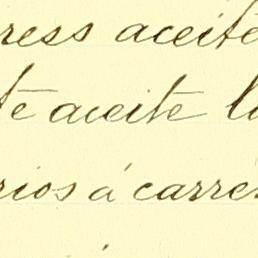 ress aceite
te aceite l
rios á carre